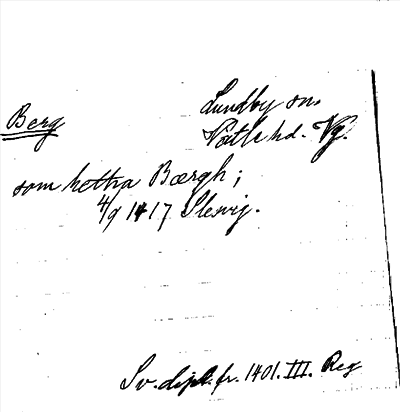 Berg
Lundby sn.
Vätle hd. Vg.
som hetha Bærgh;
4/9 1417 Slesvig.
Sv. dipl. fr. 1401. III. Reg